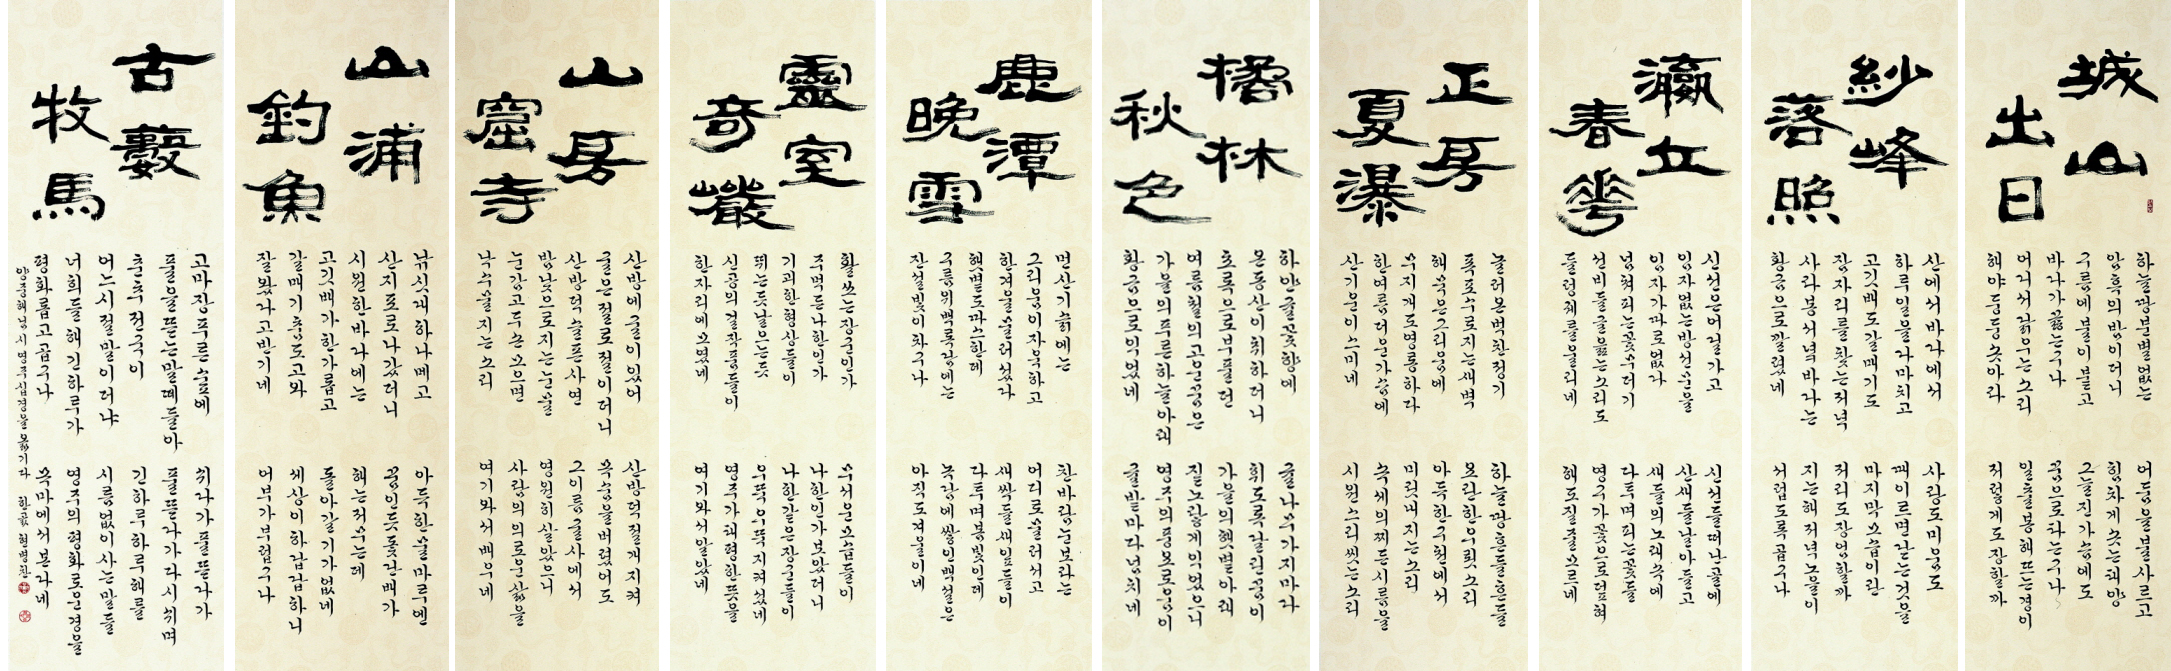 城山
出日
하늘땅분별없는
암흑의밤이더니
구름에불이붙고
바다가끓는구나
어디서닭우는소리
해야둥둥솟아라
어둠을불사르고
힘차게솟는태양
그늘진가슴에도
꿈으로타는구나
일출봉해뜨는경이
저렇게도장할까
紗峰
落照
산에서바다에서
하루일을다마치고
고깃배도갈매기도
잠자리를찾는저녁
사라봉서녘바다는
황금으로깔렸네
사랑도미움도
때이르면 것을
마지막모습이란
저리도장엄할까
지는해저녁노을이
서럽도록곱구나
瀛丘
春花
신선은어딜가고
임자없는방선문을
임자가따로없다
넘쳐피는꽃무더기
선비들글읊는소리도
들렁궤를울리네
신선들떠난골에
산새들날아들고
새들의노래속에
다투며피는꽃들
영구가꽃으로덮혀
해도질줄모르네
正房
夏瀑
눌러온벅찬정기
폭포수로지는새벽
해묵은그리움에
무지개도영롱하다
한여름더운가슴에
산기운이스미네
하늘땅흔들흔들
요란한우렛소리
아득한수원에서
미릿내지는소리
속세의찌든시름을
시원스리씻는소리
橘林
秋色
하얀귤꽃향에
온동산이취하더니
초록으로부풀던
여름철의고운꿈은
가을의푸른하늘아래
황금으로익었네
귤나무가지마다
휘도록달린꿈이
가을의햇볕아래
짙노랗게익었으니
영주의풍요로움이
귤밭마다넘치네
鹿潭
晩雪
먼산기슭에는
그리움이자욱하고
한겨울
햇볕도따스한데
구름위백록담에는
잔설빛이화구나
찬바람눈보라는
어디로쓸려서고
새싹들새잎들이
다투며봄빛인데
녹담에쌓인백설은
아직도겨울이네
靈室
奇巖
활쏘는장군인가
주먹든나한인가
기괴한형상들이
뛰는듯날으는듯
신공의걸작품들이
한자리에모였네
무서운모습들이
나한인가보았더니
나한같은장군들이
우뚝우뚝지켜섰네
영주가태평한뜻을
여기와서알았네
山房
窟寺
산방에굴이있어
굴은절로절이더니
산방덕슬픈사연
밤낮으로지는눈물
눈감고두손모으면
낙수물지는소리
산방덕절개지켜
목숨을버렸어도
그이름굴사에서
영원히살았으니
사람의의로운삶을
여기와서배우네
山浦
釣魚
낚싯대하나메고
산지포로나갔더니
시원한바다에는
고깃배가한가롭고
갈매기춤도고와
잘왔다고반기네
아득한물마루엔
꿈인듯돛단배가
해는저무는데
돌아갈기가없네
세상이하답답하니
어부가부럽구나
古藪
牧馬
고마장푸른숲에
풀을뜯는말떼들아
춘추전국이
어느시절말이더냐
너희들해긴하루가
평화롭고곱구나
쉬다가풀뜯다가
풀뜯다가다시쉬며
긴하루하루해를
시름없이사는말들
영주의평화로운경을
목마에서본다네
양중해님시영주십경을옮기다 한곬현병찬